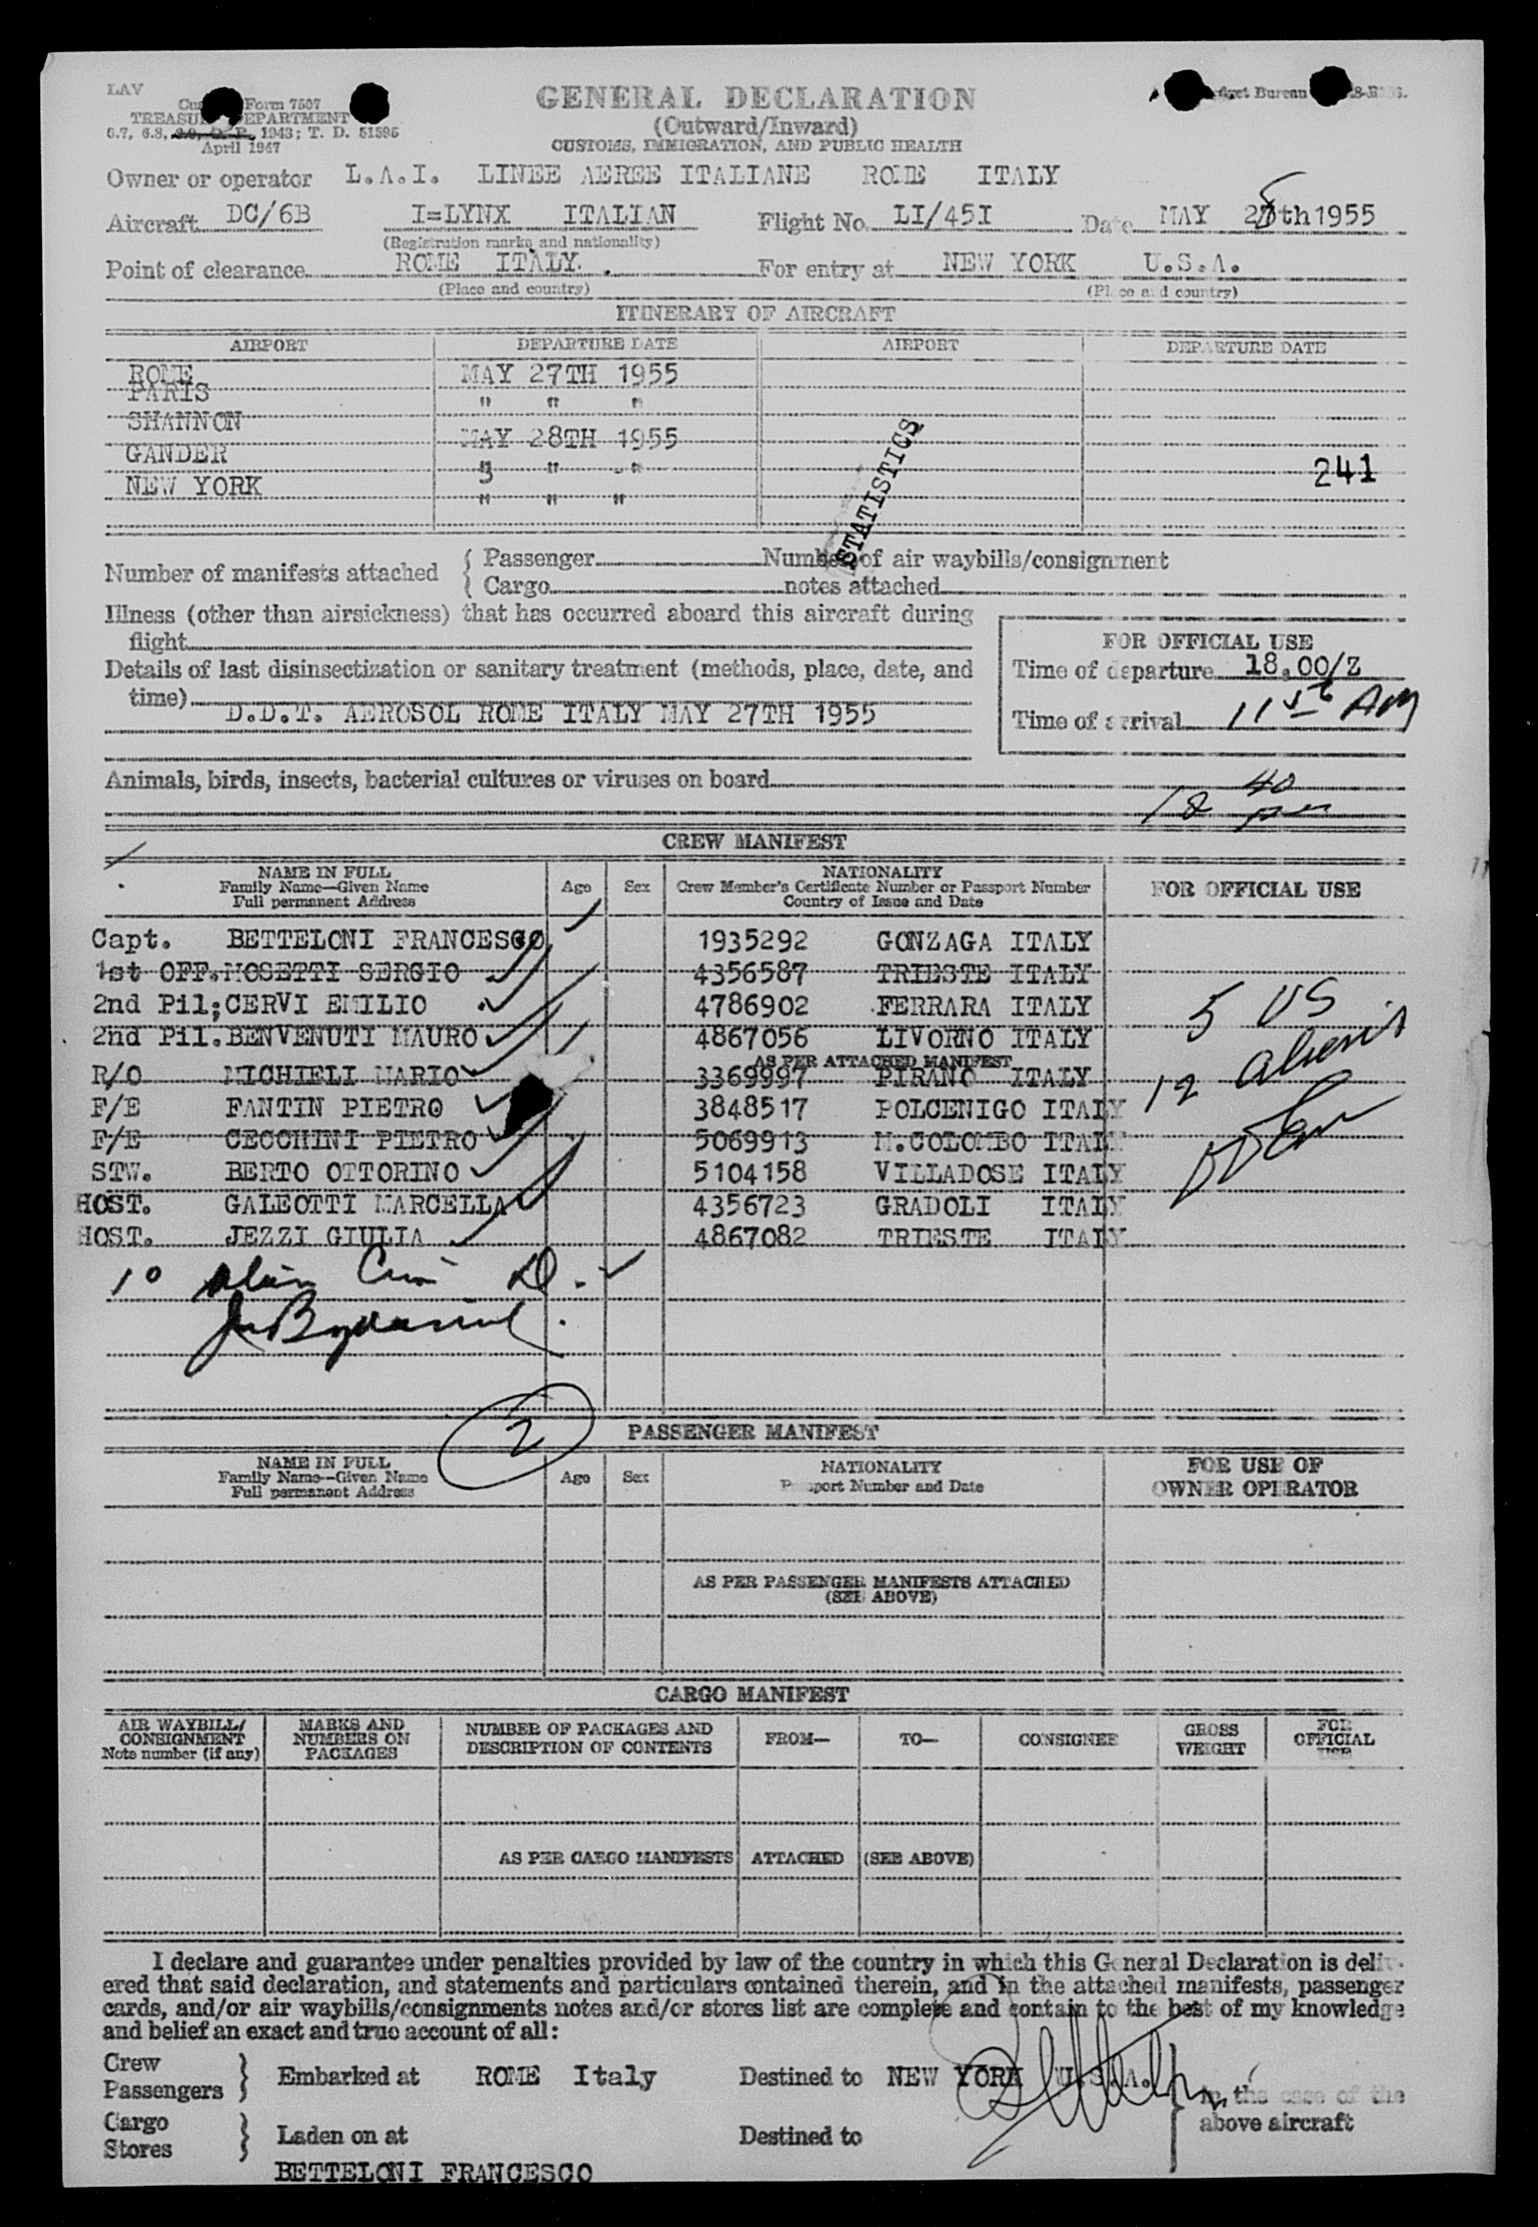 LAV
Form 7507
TREASURY DEPARTMENT
6.7, 6.8, 1943; T. D. 51595
April 1947
GENERAL DECLARATION
(Outward/Inward)
CUSTOMS, IMMIGRATION, AND PUBLIC HEALTH
Budget Bureau
Owner or operator L.A.I. LINEE AEREE ITALIANE ROME ITALY
Aircraft DC/6B I=LYNX ITALIAN Flight No. LI/451 Date MAY 28th 1955
(Registration marks and nationality)
Point of clearance ROME ITALY. For entry at NEW YORK U.S.A.
(Place and country) (Place and country)
ITINERARY OF AIRCRAFT
AIRPORT DEPARTURE DATE AIRPORT DEPARTURE DATE
ROME MAY 27TH 1955
PARIS " " "
SHANNON MAY 28TH 1955
GANDER " " "
NEW YORK " " "
241
STATISTICS
Number of manifests attached { Passenger Number of air waybills/consignment
{ Cargo notes attached
Illness (other than airsickness) that has occurred aboard this aircraft during
flight
Details of last disinsectization or sanitary treatment (methods, place, date, and
time) D.D.T. AEROSOL ROME ITALY MAY 27TH 1955
FOR OFFICIAL USE
Time of departure 18.00/Z
Time of arrival 11 AM
Animals, birds, insects, bacterial cultures or viruses on board
12 40 pm
CREW MANIFEST
NAME IN FULL
Family Name—Given Name
Full permanent Address
Age Sex
NATIONALITY
Crew Member's Certificate Number or Passport Number
Country of Issue and Date
FOR OFFICIAL USE
Capt. BETTELONI FRANCESCO 1935292 GONZAGA ITALY
1st OFF. MOSETTI SERGIO 4356587 TRIESTE ITALY
2nd Pil; CERVI EMILIO 4786902 FERRARA ITALY
2nd Pil. BENVENUTI MAURO 4867056 LIVORNO ITALY
AS PER ATTACHED MANIFEST
R/O MICHIELI MARIO 3369997 PIRANO ITALY
F/E FANTIN PIETRO 3848517 POLCENIGO ITALY
F/E CECCHINI PIETRO 5069913 M.COLOMBO ITALY
STW. BERTO OTTORINO 5104158 VILLADOSE ITALY
HOST. GALEOTTI MARCELLA 4356723 GRADOLI ITALY
HOST. JEZZI GIULIA 4867082 TRIESTE ITALY
5 US
12 Aliens
10 alien
2
PASSENGER MANIFEST
NAME IN FULL
Family Name—Given Name
Full permanent Address
Age Sex
NATIONALITY
Passport Number and Date
FOR USE OF
OWNER OPERATOR
AS PER PASSENGER MANIFESTS ATTACHED
(SEE ABOVE)
CARGO MANIFEST
AIR WAYBILL/
CONSIGNMENT
Note number (if any)
MARKS AND
NUMBERS ON
PACKAGES
NUMBER OF PACKAGES AND
DESCRIPTION OF CONTENTS
FROM—
TO—
CONSIGNEE
GROSS
WEIGHT
FOR
OFFICIAL
USE
AS PER CARGO MANIFESTS ATTACHED (SEE ABOVE)
I declare and guarantee under penalties provided by law of the country in which this General Declaration is deliv-
ered that said declaration, and statements and particulars contained therein, and in the attached manifests, passenger
cards, and/or air waybills/consignments notes and/or stores list are complete and contain to the best of my knowledge
and belief an exact and true account of all:
Crew
Passengers } Embarked at ROME Italy Destined to NEW YORK U.S.A.
in the case of the
above aircraft
Cargo
Stores } Laden on at Destined to
BETTELONI FRANCESCO